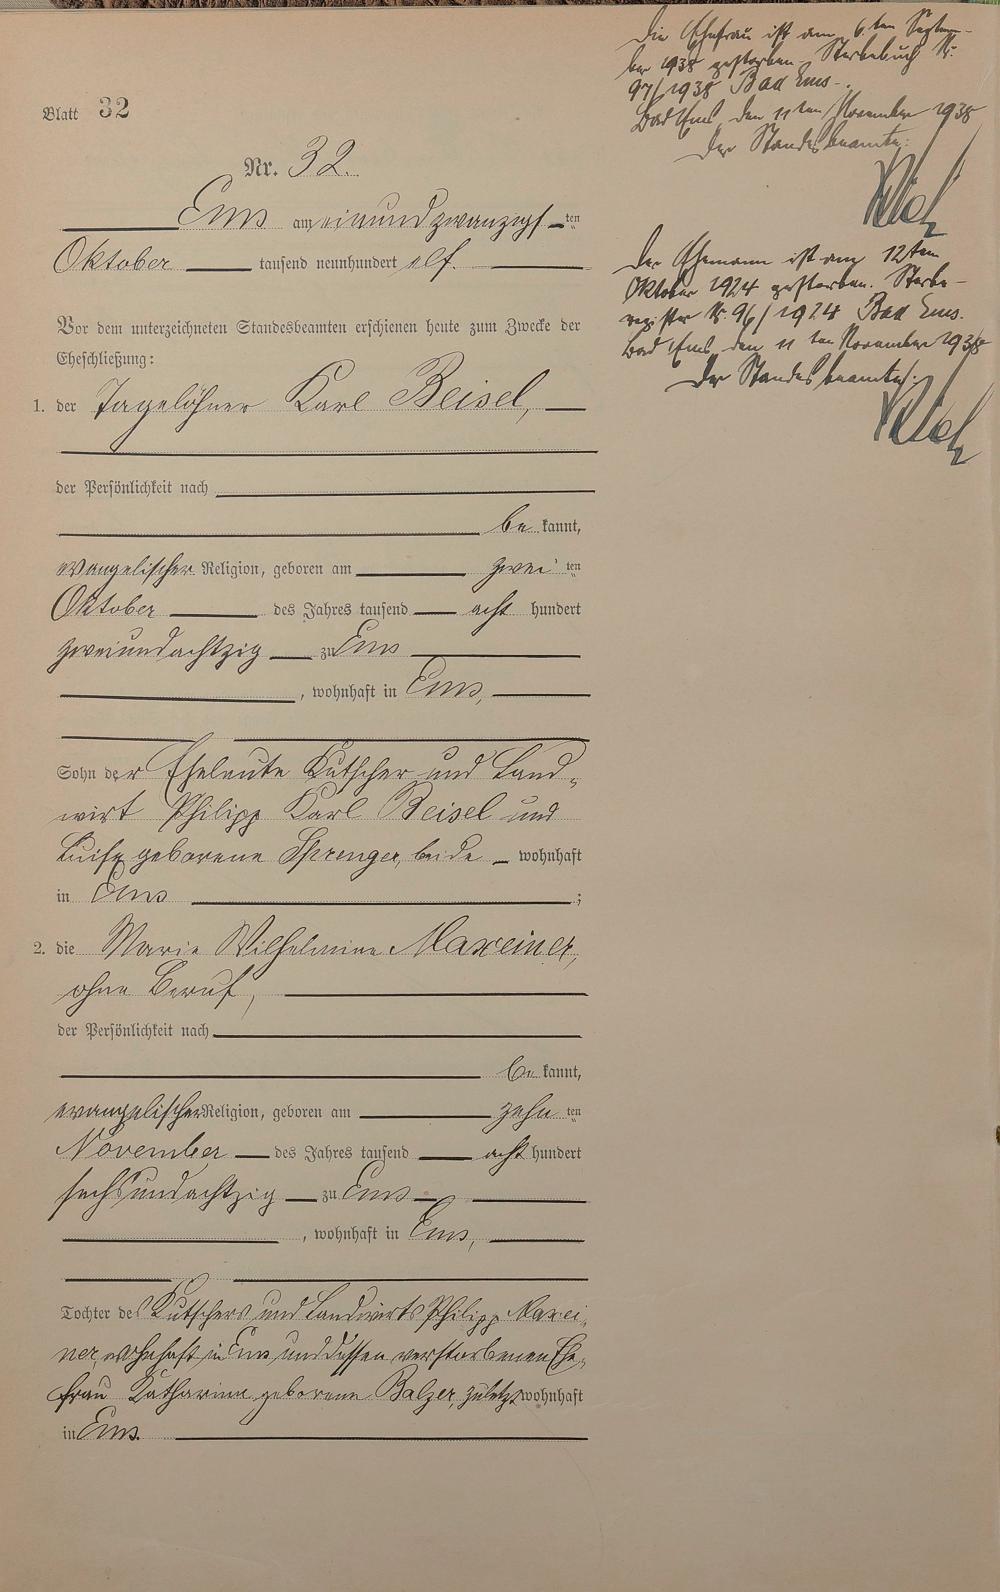 Blatt 32
Nr. 32.
Ems am einundzwanzigsten
Oktober tausend neunhundert elf.
Vor dem unterzeichneten Standesbeamten erschienen heute zum Zwecke der
Eheschließung:
1. der Tagelöhner Karl Beisel,
der Persönlichkeit nach
be kannt,
evangelischer Religion, geboren am zwei ten
Oktober des Jahres tausend acht hundert
zweiundachtzig zu Ems
, wohnhaft in Ems,
Sohn der Eheleute Kutscher und Land-
wirt Philipp Karl Beisel und
Luise geborene Sprenger, beide wohnhaft
in Ems ;
2. die Marie Wilhelmine Maxeiner,
ohne Beruf,
der Persönlichkeit nach
be kannt,
evangelischer Religion, geboren am zehn ten
November des Jahres tausend acht hundert
sechsundachtzig zu Ems
, wohnhaft in Ems,
Tochter des Kutschers und Landwirts Philipp Maxei-
ner, wohnhaft in Ems und dessen verstorbenen Ehe-
frau Katharina geborene Balzer, zuletzt wohnhaft
in Ems.
Die Ehefrau ist am 6.ten Septem-
ber 1938 gestorben. Sterbebuch Nr.
97/1938 Bad Ems.
Bad Ems, den 11ten November 1938
Der Standesbeamte:
Der Ehemann ist am 12ten
Oktober 1924 gestorben. Sterbe-
register Nr. 96/1924 Bad Ems.
Bad Ems, den 11ten November 1938
Der Standesbeamte: